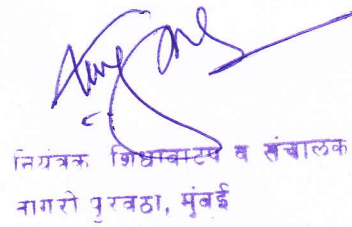 नियंत्रक शिधावाटप व संचालक
नागरी पुरवठा, मुंबई